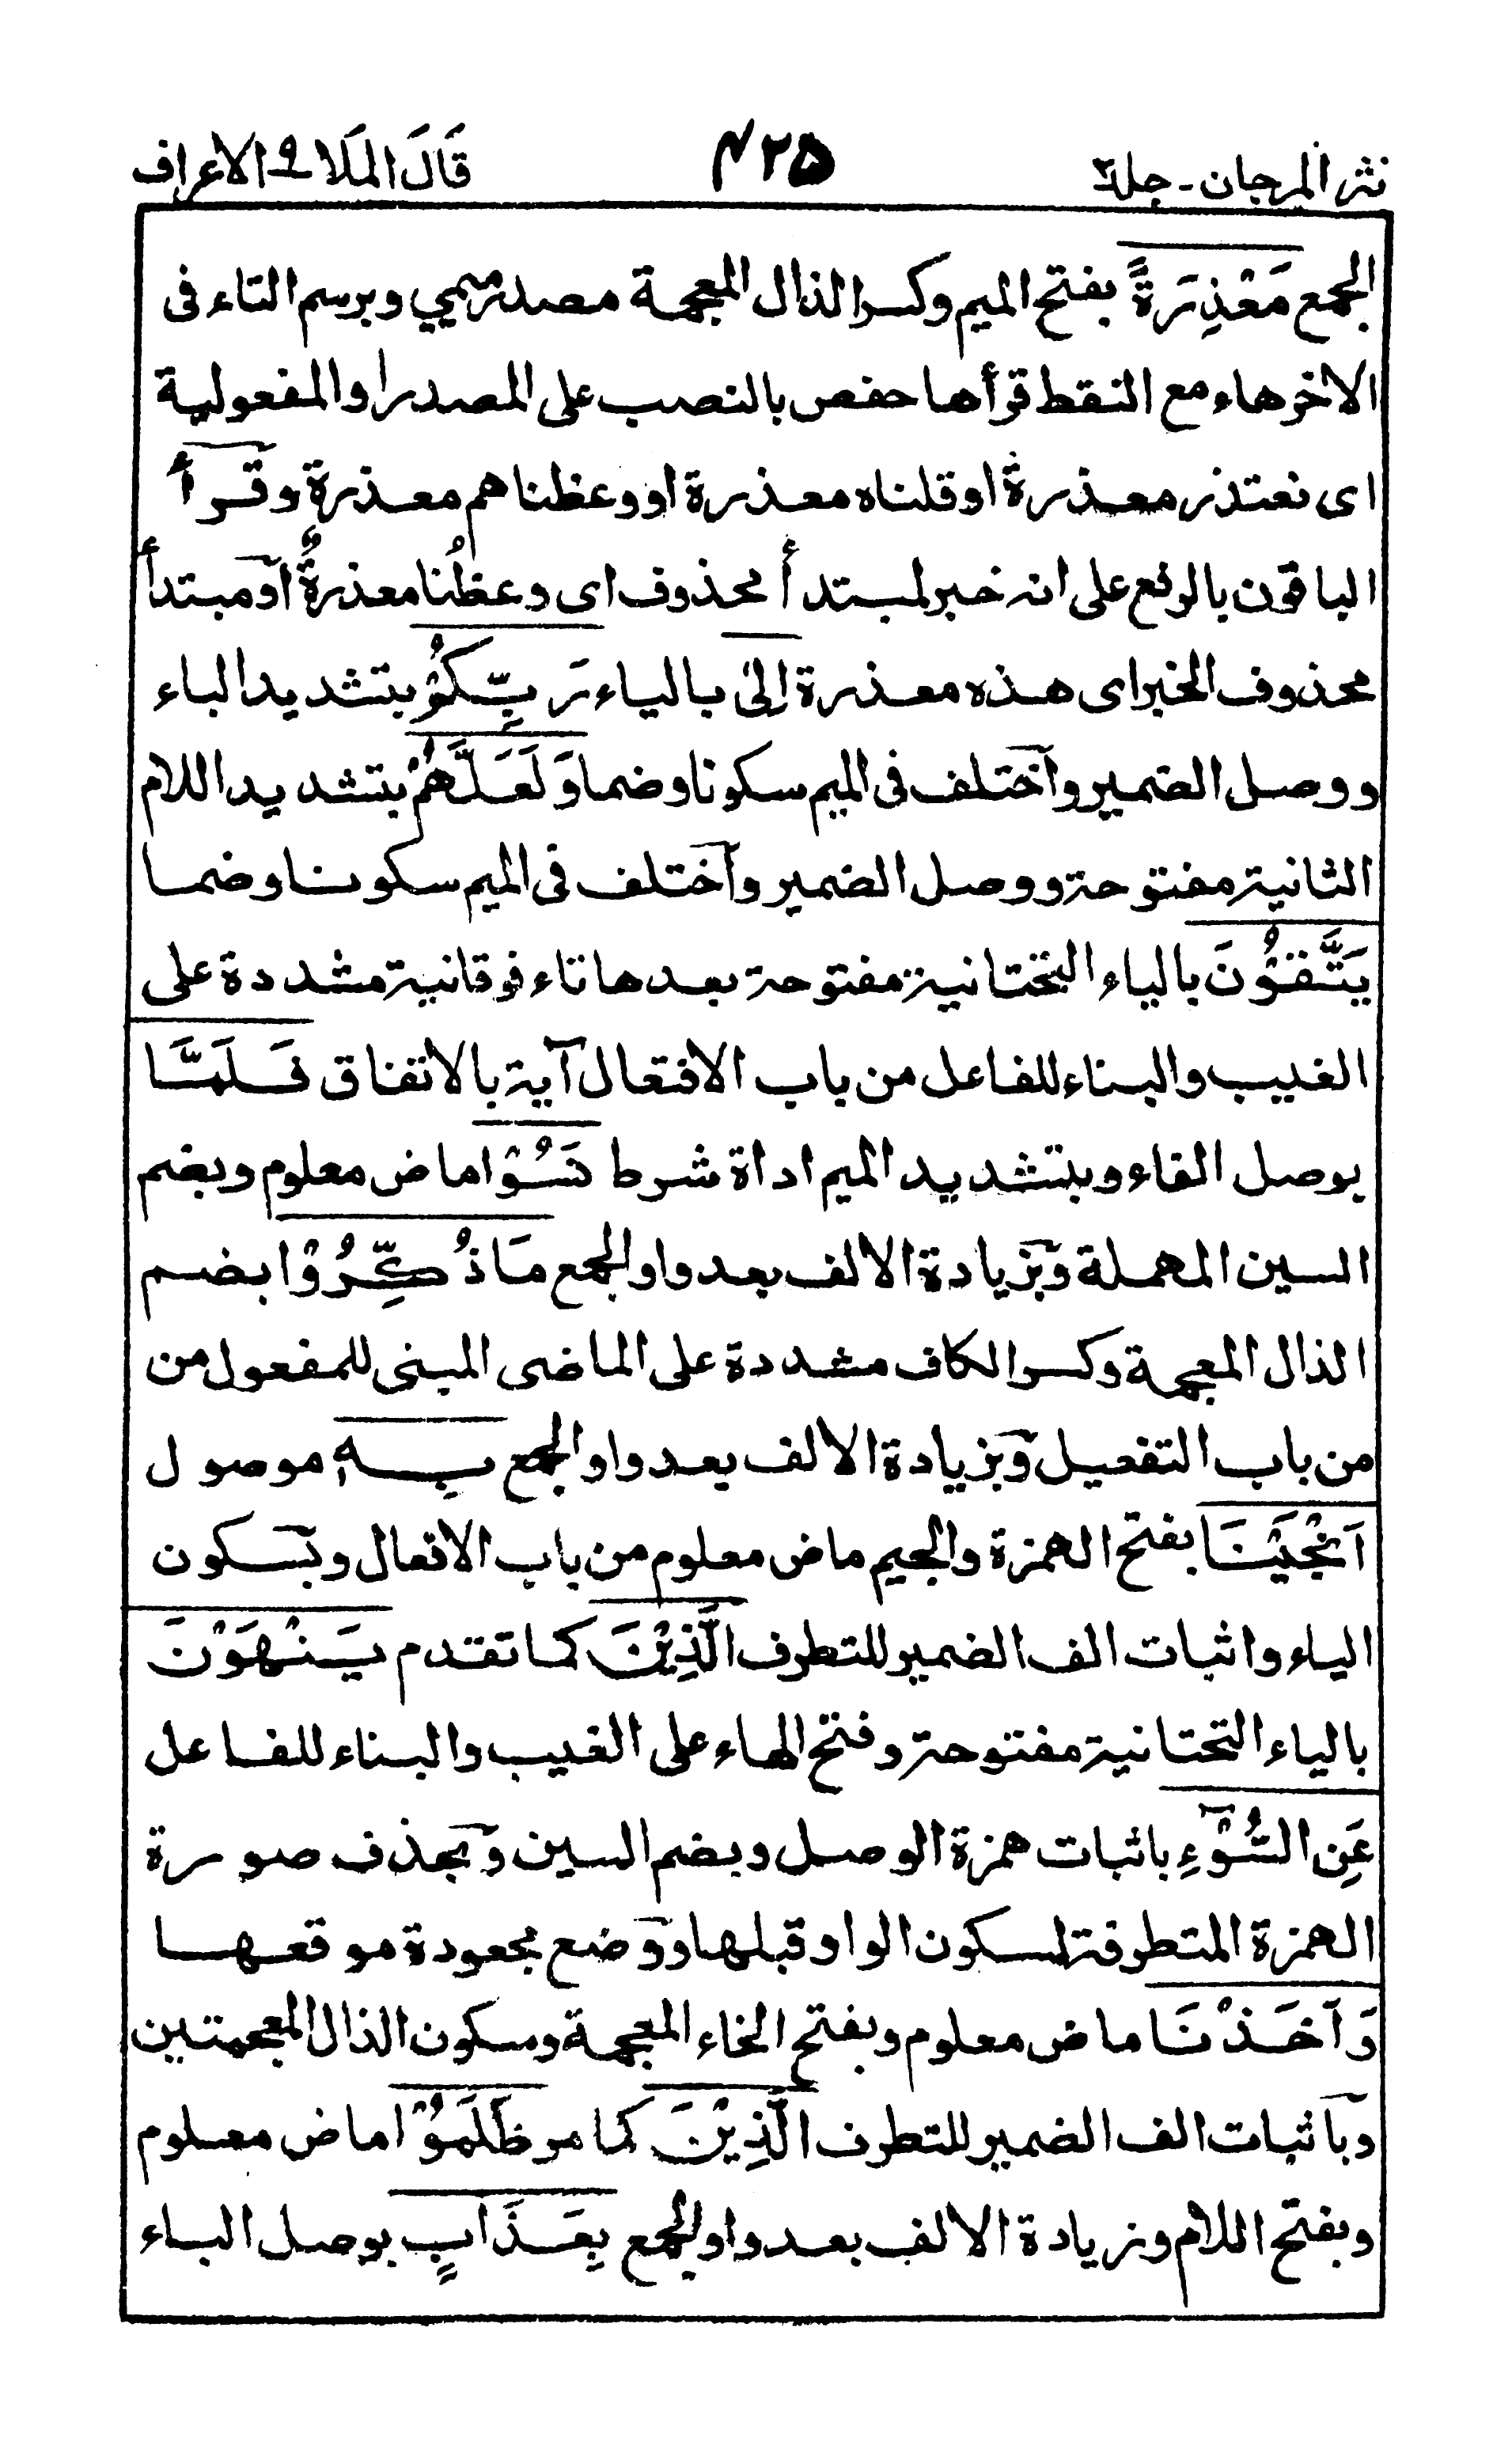 نثر المرجان - جلد ٢ ٤٢٥ قَالَ المَلَا ٩ الاعراف
الجمع مَعْذِرَةً بفتح الميم وكسر الذال المعجمة مصدر ميمي وبرسم التاء فى
الاخر هاء مع النقط قرأها حفص بالنصب على المصدر او المفعولية
اى نعتذر معذرة او قلناه معذرة او وعظناهم معذرة وقرأ
الباقون بالرفع على انه خبر لمبتدأ محذوف اى وعظُنا معذرةٌ او مبتدأ
محذوف الخبر اى هذه معذرة إلىٰ بالياء رَبِّكُمْ بتشديد الباء
ووصل الضمير وآختلف فى الميم سكونا وضما وَلَعَلَّهُمْ بتشديد اللام
الثانية مفتوحة ووصل الضمير وآختلف فى الميم سكونا وضما
يَتَّقُوْنَ بالياء التحتانية مفتوحة بعدها تاء فوقانية مشددة على
الغيب والبناء للفاعل من باب الافتعال آية بالاتفاق فَلَمَّا
بوصل الفاء وبتشديد الميم اداة شرط نَسُوْا ماض معلوم وبضم
السين المهملة وبزيادة الالف بعد واو الجمع مَا ذُكِّرُوْا بضم
الذال المعجمة وكسر الكاف مشددة على الماضى المبنى للمفعول من
من باب التفعيل وبزيادة الالف بعد واو الجمع بِهٖ موصول
اَنْجَيْنَا بفتح الهمزة والجيم ماض معلوم من باب الافعال وبسكون
الياء واثبات الف الضمير للتطرف الَّذِيْنَ كما تقدم يَنْهَوْنَ
بالياء التحتانية مفتوحة وفتح الهاء على الغيب والبناء للفاعل
عَنِ السُّوْٓءِ باثبات همزة الوصل وبضم السين وبحذف صورة
الهمزة المتطرفة لسكون الواو قبلها ووضع مجعودة موقعها
وَاَخَذْنَا ماض معلوم وبفتح الخاء المعجمة وسكون الذال المعجمتين
وبآثبات الف الضمير للتطرف الَّذِيْنَ كما مر ظَلَمُوْا ماض معلوم
وبفتح اللام وزيادة الالف بعد واو الجمع بِعَذَابٍ بوصل الباء